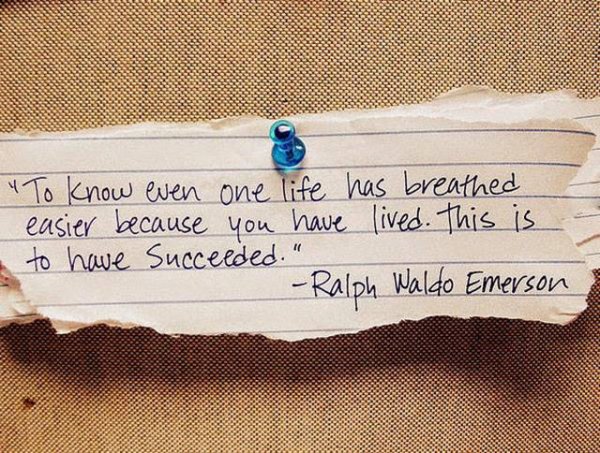 "To know even one life has breathed
easier because you have lived. This is
to have Succeeded."
-Ralph Waldo Emerson